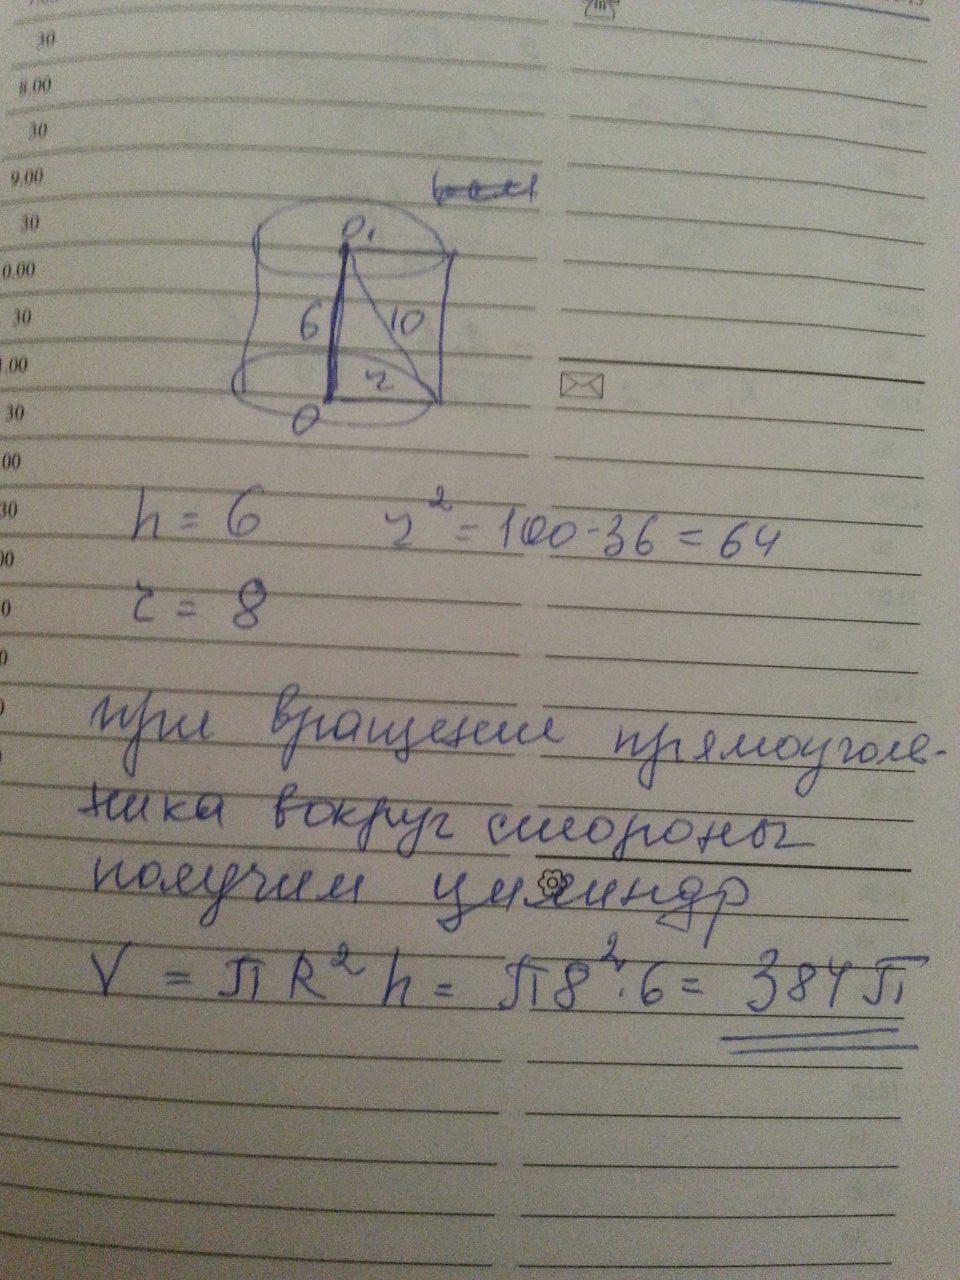 30
8.00
30
9.00
30
0.00
30
1.00
30
00
30
00
0
0
O₁
6
10
r
O
h = 6 r² = 100-36 = 64
r = 8
при вращении прямоуголь-
ника вокруг стороны
получим цилиндр
V = πR²h = π8²·6 = 384π